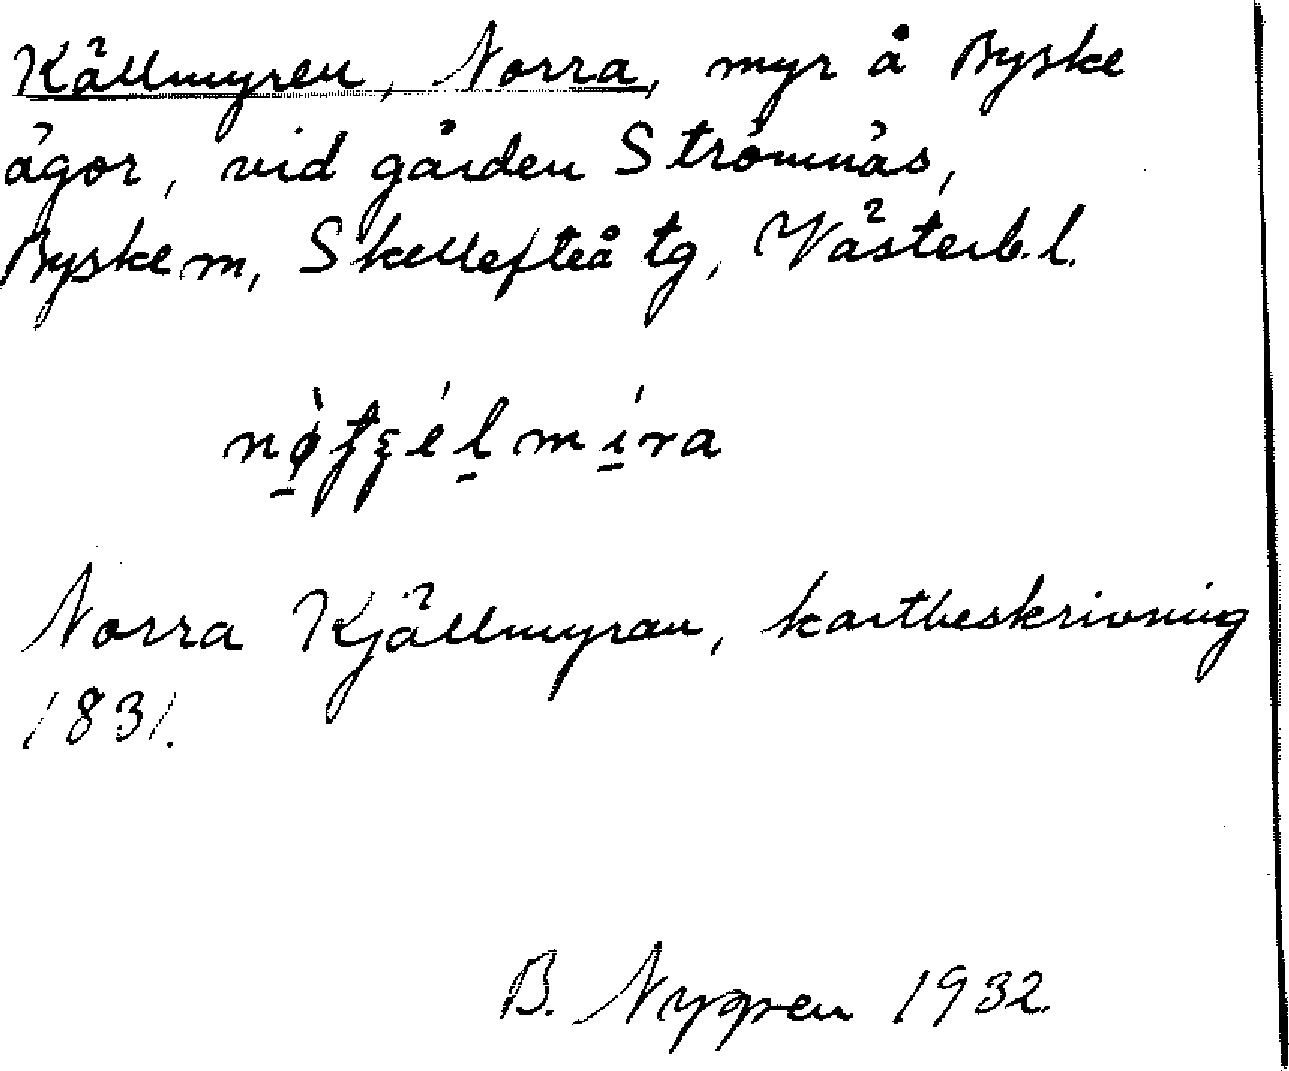 Källmyren, Norra, myr å Byske
ägor, vid gården Strömnäs,
Byske sn, Skellefteå tg, Västerb. l.
Norra Kjällmyran, kartbeskrivning
1831.
B. Nygren 1932.